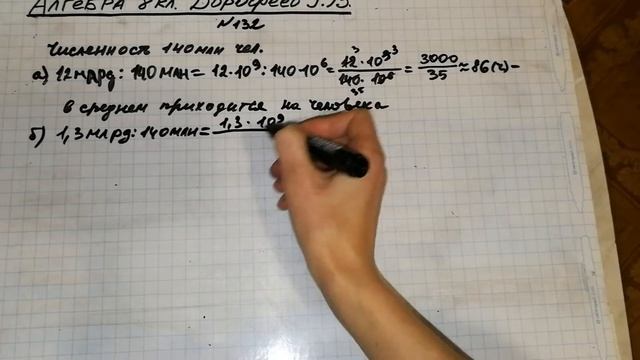 Алгебра 8 кл. Дорофеев Г.В.
№132
Численность 140 млн чел.
а) 12 млрд : 140 млн = 12·10⁹ : 140·10⁶ = 12·10⁹ ³ / 140·10⁶ = 3000/35 ≈ 86 (ч) –
3
35
в среднем приходится на человека
б) 1,3 млрд : 140 млн = 1,3·10⁹